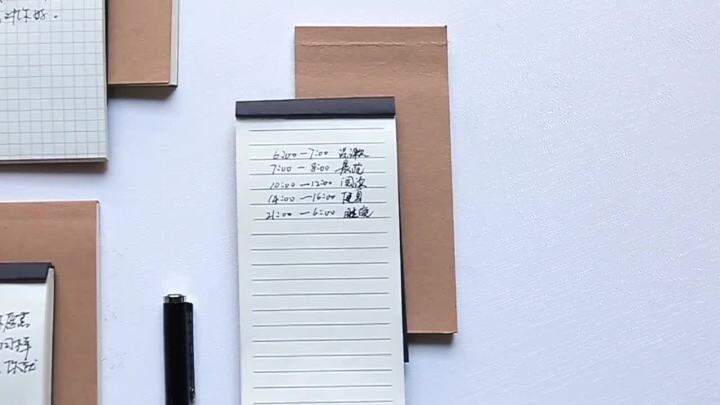 对你好.
6:00—7:00 洗漱
7:00—8:00 晨跑
10:00—12:00 阅读
14:00—16:00 健身
21:00—6:00 睡觉
同样